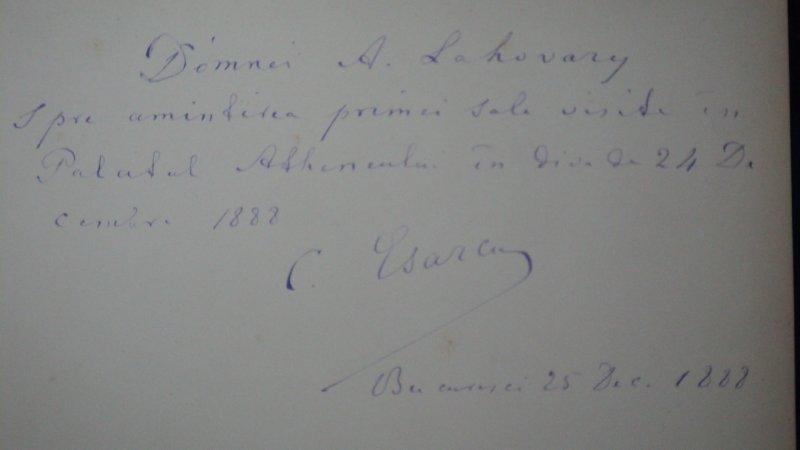 Dómnei A. Lahovary
Spre amintirea primei sale visite în
Palatul Atheneului în diua de 24 De
cembre 1888
C. Esarcu
Bucuresci 25 Dec. 1888